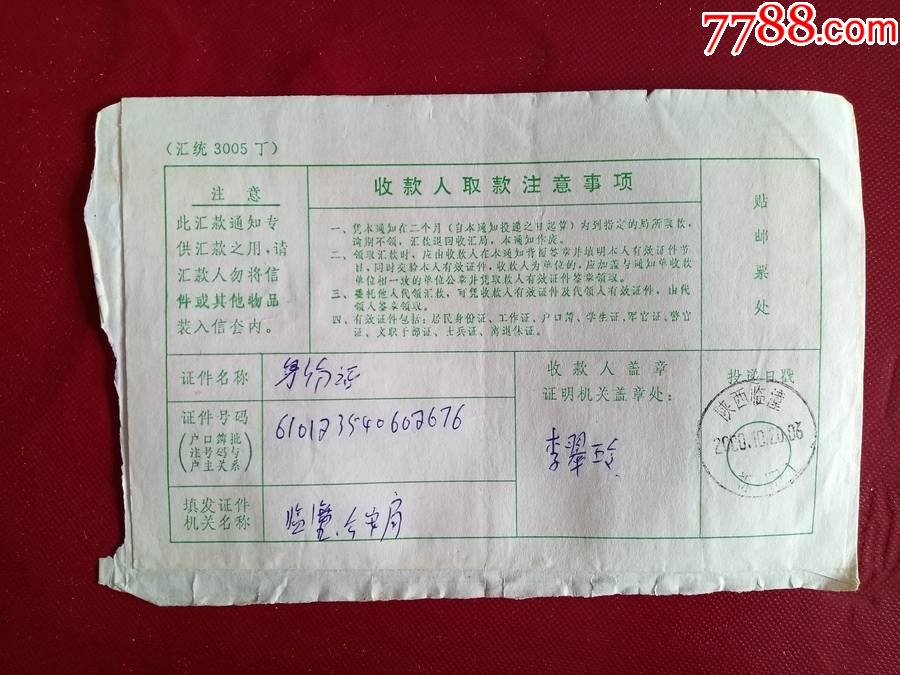 7788.com
(汇统 3005 丁)
注 意
此汇款通知专
供汇款之用,请
汇款人勿将信
件或其他物品
装入信套内。
收款人取款注意事项
一、凭本通知在二个月(自本通知投递之日起算)内到指定的局所取款,
逾期不领,汇款退回收汇局,本通知作废。
二、领取汇款时,应由收款人在本通知背面签章并填明本人有效证件节
目,同时交验本人有效证件,收款人为单位的,应加盖与通知单收款
单位相一致的单位公章并凭取款人有效证件签章领取。
三、委托他人代领汇款,可凭收款人有效证件及代领人有效证件,由代
领人签章领取。
四、有效证件包括:居民身份证、工作证、户口簿、学生证、军官证、警官
证、文职干部证、士兵证、离退休证。
贴
邮
票
处
证件名称
身份证
证件号码
(户口簿批
准号码与
户主关系)
610123540602676
填发证件
机关名称
临潼公安局
收款人盖章
证明机关盖章处:
李翠玲
投递日戳
陕西临潼
2000.10.20.06